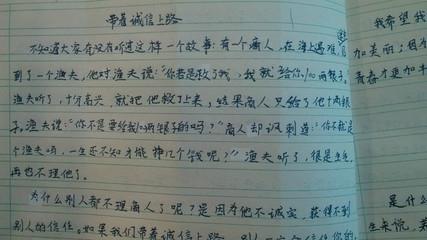 带着诚信上路
不知道大家有没有听过这样一个故事:有个商人,在海上遇难,遇
到了一个渔夫,他对渔夫说:"你若是救了我,我就给你100两银子。"
渔夫听了,十分高兴,就把他救了上来,结果商人只给了他十两银
子。渔夫说:"你不是要给我100两银子的吗?"商人却讽刺道:"你不就是
个渔夫吗,一生还不知才能挣几个钱呢?"渔夫听了,很是生气,
再也不理他了。
为什么别人都不理商人了呢?是因为他不诚实,获得不到
别人的信任。如果我们带着诚信上路,
我希望我
加美丽;因为
青春才更加
是什么
生来说,